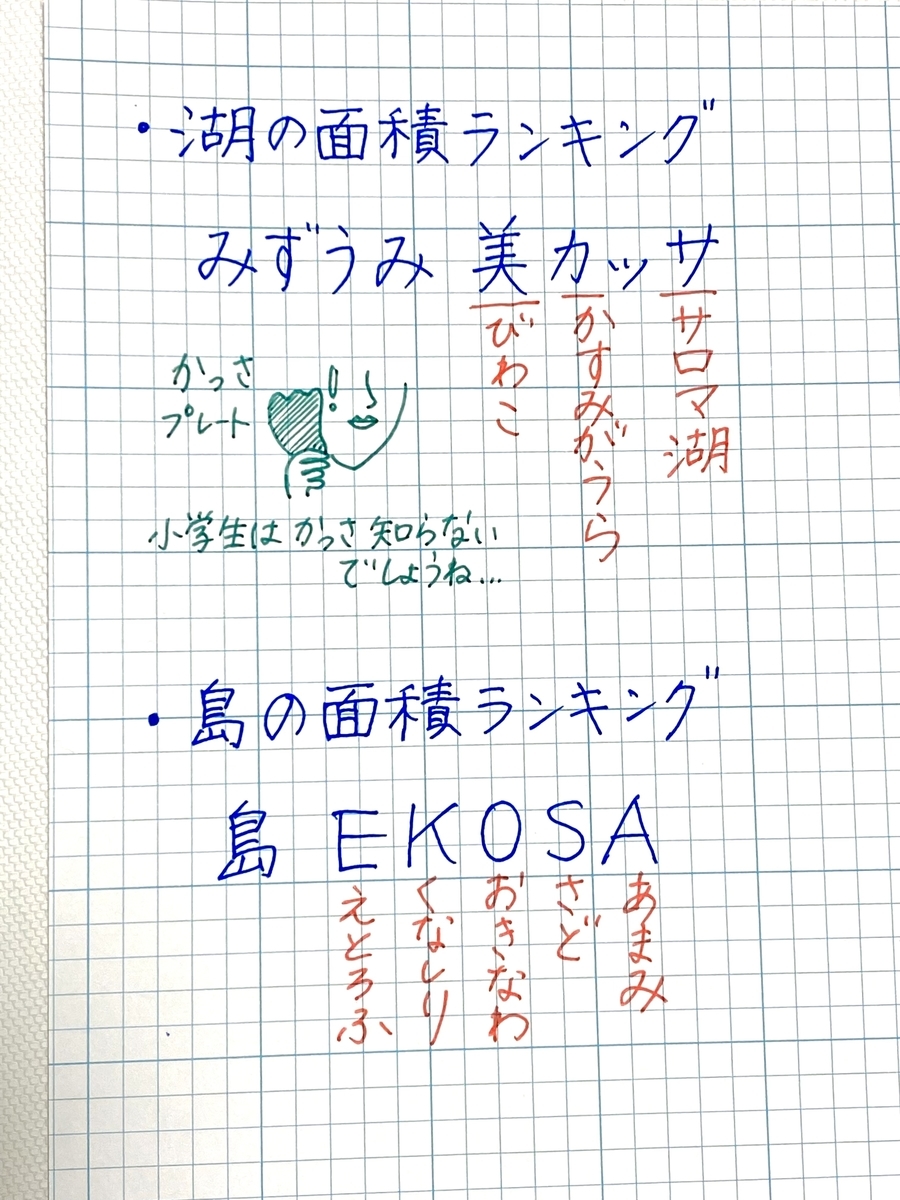 ・湖の面積ランキング
みずうみ 美カッサ
びわこ
かすみがうら
サロマ湖
かっさ
プレート
小学生は かっさ 知らない
でしょうね...
・島の面積ランキング
島 EKOSA
えとろふ
くなしり
おきなわ
さど
あまみ